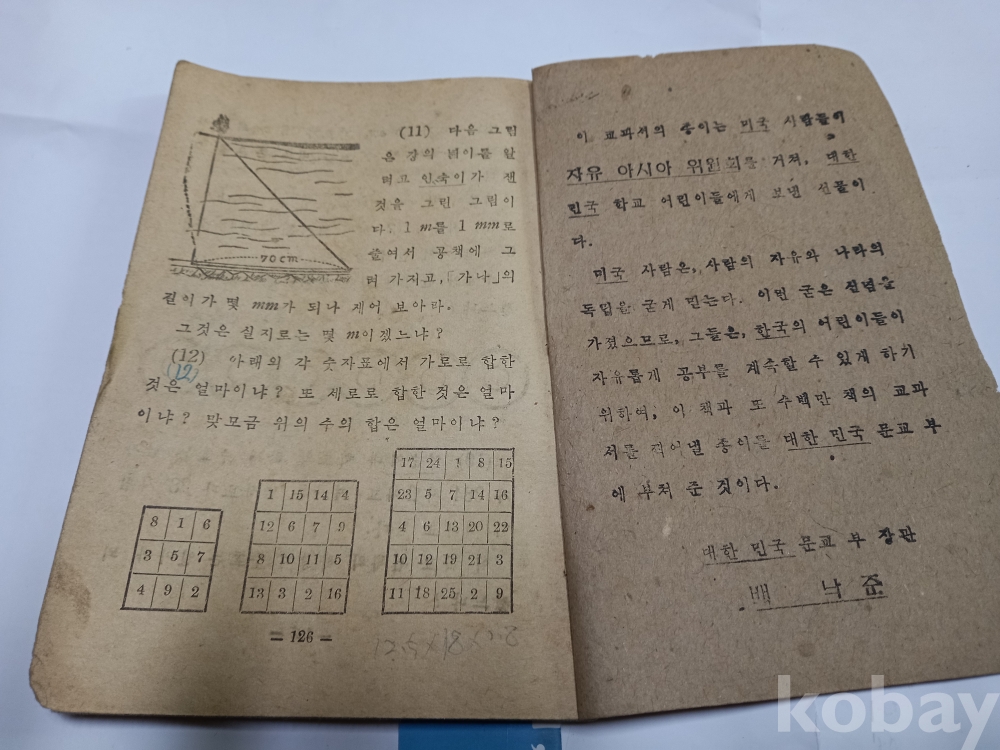 (11) 다음 그림
은 강의 넓이를 알
려고 인숙이가 잰
것을 그린 그림이
다. 1 m를 1 mm로
줄여서 공책에 그
려 가지고, 「가나」의
길이가 몇 mm가 되나 재어 보아라.
그것은 실지로는 몇 m이겠느냐?
70cm
(12) 아래의 각 숫자표에서 가로로 합한
12
것은 얼마이냐? 또 세로로 합한 것은 얼마
이냐? 맞모금 위의 수의 합은 얼마이냐?
8 1 6
3 5 7
4 9 2
1 15 14 4
12 6 7 9
8 10 11 5
13 3 2 16
17 24 1 8 15
23 5 7 14 16
4 6 13 20 22
10 12 19 21 3
11 18 25 2 9
= 126 =
이 교과서의 종이는 미국 사람들이
자유 아시아 위원회를 거쳐, 대한
민국 학교 어린이들에게 보낸 선물이
다.
미국 사람은, 사람의 자유와 나라의
독립을 굳게 믿는다. 이런 굳은 신념을
가졌으므로, 그들은, 한국의 어린이들이
자유롭게 공부를 계속할 수 있게 하기
위하여, 이 책과 또 수백만 책의 교과
서를 박어낼 종이를 대한 민국 문교 부
에 부쳐 준 것이다.
대한 민국 문교 부 장관
백 낙 준
kobay